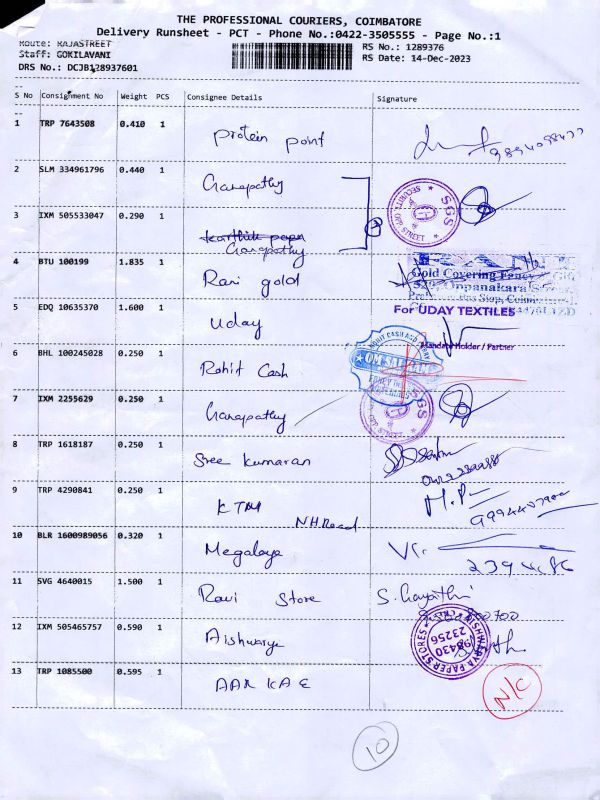 THE PROFESSIONAL COURIERS, COIMBATORE
Delivery Runsheet - PCT - Phone No.:0422-3505555 - Page No.:1
Route: RAJASTREET
Staff: GOKILAVANI
DRS No.: DCJB128937601
RS No.: 1289376
RS Date: 14-Dec-2023
S No Consignment No Weight PCS Consignee Details Signature
1 TRP 7643508 0.410 1 Protein point
2 SLM 334961796 0.440 1 Ganapathy
SGS
SECURITY
STREET
3 IXM 505533047 0.290 1 Karthik papn
Ganapathy
4 BTU 100199 1.835 1 Ravi gold
Gold Covering Fancy
5 EDQ 10635370 1.600 1 Uday
For UDAY TEXTILES
Mandate Holder / Partner
6 BHL 100245028 0.250 1 Rohit Cash
ROHIT CASH AND CARRY
OM SAI RAM
7 IXM 2255629 0.250 1 Ganapathy
SGS
8 TRP 1618187 0.250 1 Sree Kumaran
9 TRP 4290841 0.250 1 KTM
NH Road
M.P
10 BLR 1600989056 0.320 1 Megalaya
11 SVG 4640015 1.500 1 Ravi Store S. Gayathri
12 IXM 505465757 0.590 1 Aishwarya
AISHWARYA PAPER STORES
98430
23256
13 TRP 1085500 0.595 1 AAR KAE
N/C
10